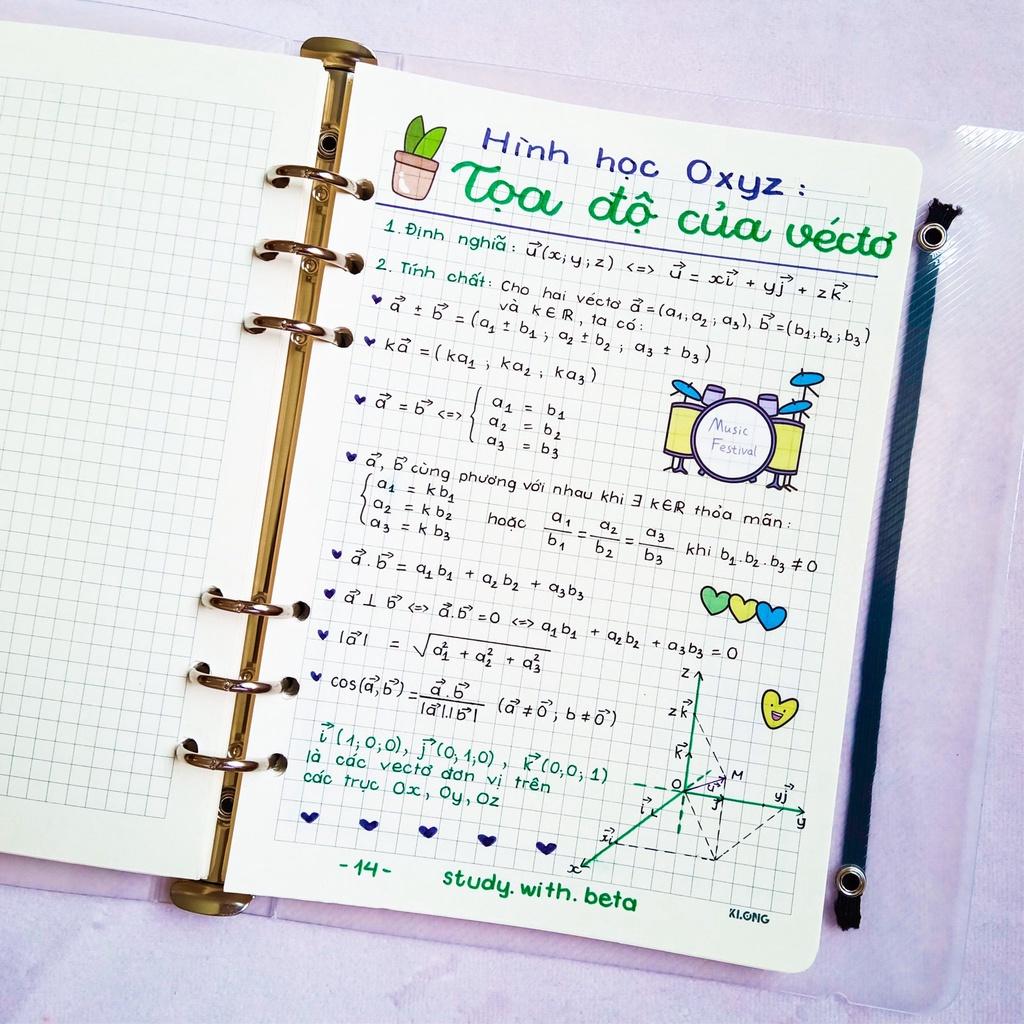 Hình học Oxyz:
Tọa độ của véctơ
1. Định nghiã: u⃗(x; y; z) <=> u⃗ = xi⃗ + yj⃗ + zk⃗.
2. Tính chất: Cho hai véctơ a⃗ = (a₁; a₂; a₃), b⃗ = (b₁; b₂; b₃)
và k ∈ ℝ, ta có:
a⃗ ± b⃗ = (a₁ ± b₁; a₂ ± b₂; a₃ ± b₃)
ka⃗ = (ka₁; ka₂; ka₃)
a⃗ = b⃗ <=> { a₁ = b₁
a₂ = b₂
a₃ = b₃
Music
Festival
a⃗, b⃗ cùng phương với nhau khi ∃ k∈ℝ thỏa mãn:
{ a₁ = kb₁
a₂ = kb₂
a₃ = kb₃
hoặc a₁/b₁ = a₂/b₂ = a₃/b₃ khi b₁.b₂.b₃ ≠ 0
a⃗.b⃗ = a₁b₁ + a₂b₂ + a₃b₃
a⃗ ⊥ b⃗ <=> a⃗.b⃗ = 0 <=> a₁b₁ + a₂b₂ + a₃b₃ = 0
|a⃗| = √(a₁² + a₂² + a₃²)
cos(a⃗,b⃗) = a⃗.b⃗/|a⃗|.|b⃗| (a⃗ ≠ 0⃗; b ≠ 0⃗)
i⃗(1; 0; 0), j⃗(0; 1; 0), k⃗(0; 0; 1)
là các vectơ đơn vị trên
các trục Ox, Oy, Oz
z
zk⃗
k⃗
M
O
u⃗
j⃗
yj⃗
y
i⃗
xi⃗
x
-14-
study.with.beta
KLONG